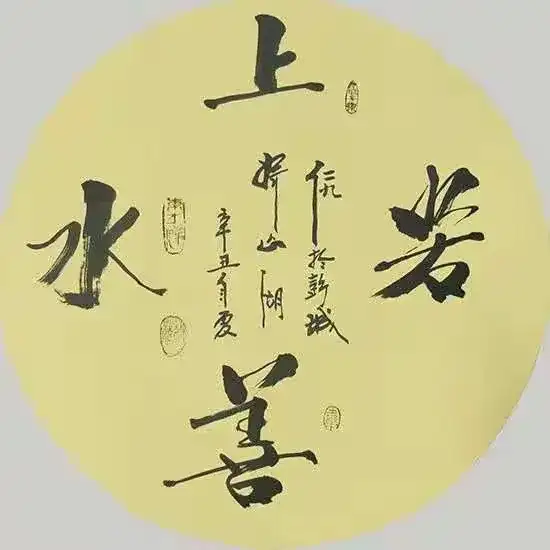 上
善
若
水
於彭城
山湖
辛丑夏